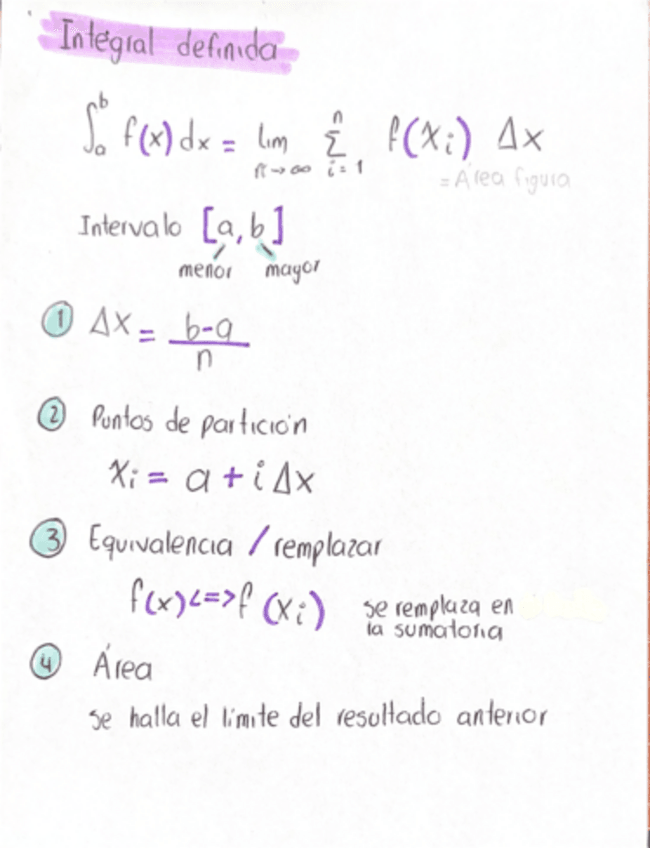 Integral definida
∫ₐᵇ f(x) dx = lim n→∞ n Σ i=1 f(xᵢ) Δx
= Área figura
Intervalo [a, b]
menor mayor
① Δx = b-a / n
② Puntos de partición
xᵢ = a + i Δx
③ Equivalencia / remplazar
f(x) <=> f(xᵢ) se remplaza en
la sumatoria
④ Área
se halla el límite del resultado anterior